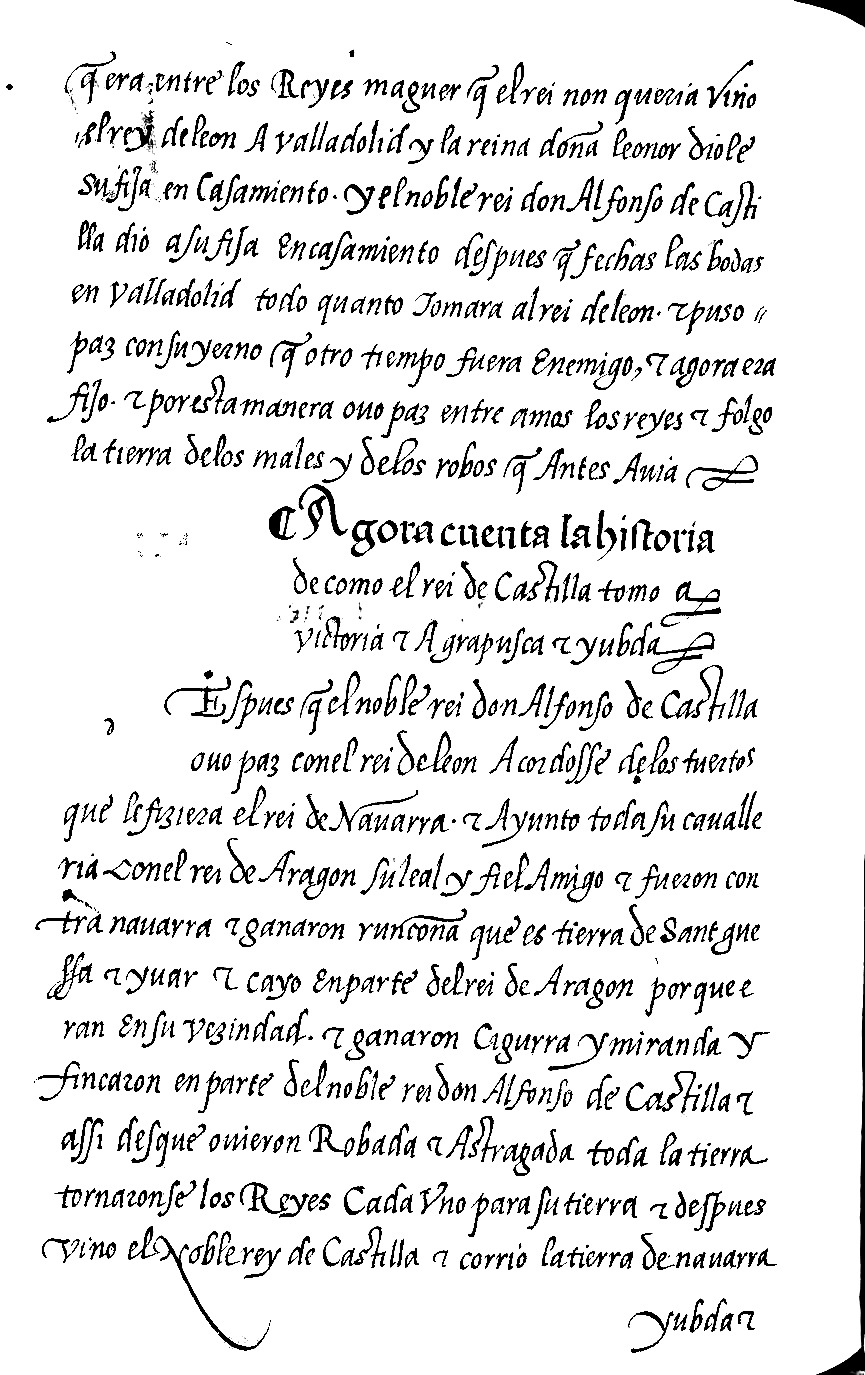 q̃ era entre los Reyes maguer q̃ el rei non queria vino
el rey de leon A valladolid y la reina doña leonor diole
su fija en Casamiento. y el noble rei don Alfonso de Casti
lla dio a su fija En casamiento despues q̃ fechas las bodas
en valladolid todo quanto Tomara al rei de leon. ⁊ puso //
paz con su yerno q̃ otro tiempo fuera Enemigo, ⁊ agora era
fijo. ⁊ por esta manera ouo paz entre amos los reyes ⁊ folgo
la tierra de los males y de los robos q̃ Antes Auia
¶ Agora cuenta la historia
de como el rei de Castilla tomo a
victoria ⁊ A grapusca ⁊ yubda
Espues q̃ el noble rei don Alfonso de Castilla
ouo paz con el rei de leon Acordosse de los tuertos
que le fiziera el rei de Nauarra. ⁊ Ayunto toda su caualle
ria con el rei de Aragon su leal y fiel Amigo ⁊ fueron con
tra nauarra ⁊ ganaron runcoña que es tierra de Sant gue
ssa ⁊ yuar ⁊ cayo En parte del rei de Aragon por que e
ran En su vezindad. ⁊ ganaron Cigurra y miranda y
fincaron en parte del noble rei don Alfonso de Castilla ⁊
assi desque ouieron Robada ⁊ Astragada toda la tierra
tornaronse los Reyes Cada Vno para su tierra ⁊ despues
vino el Noble rey de Castilla ⁊ corrio la tierra de nauarra
yubda ⁊